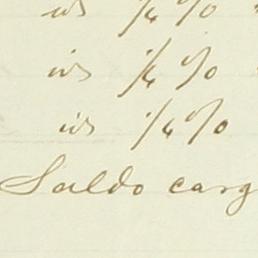 ids ¼ %
ids ¼ %
ids ¼ %
Saldo carg